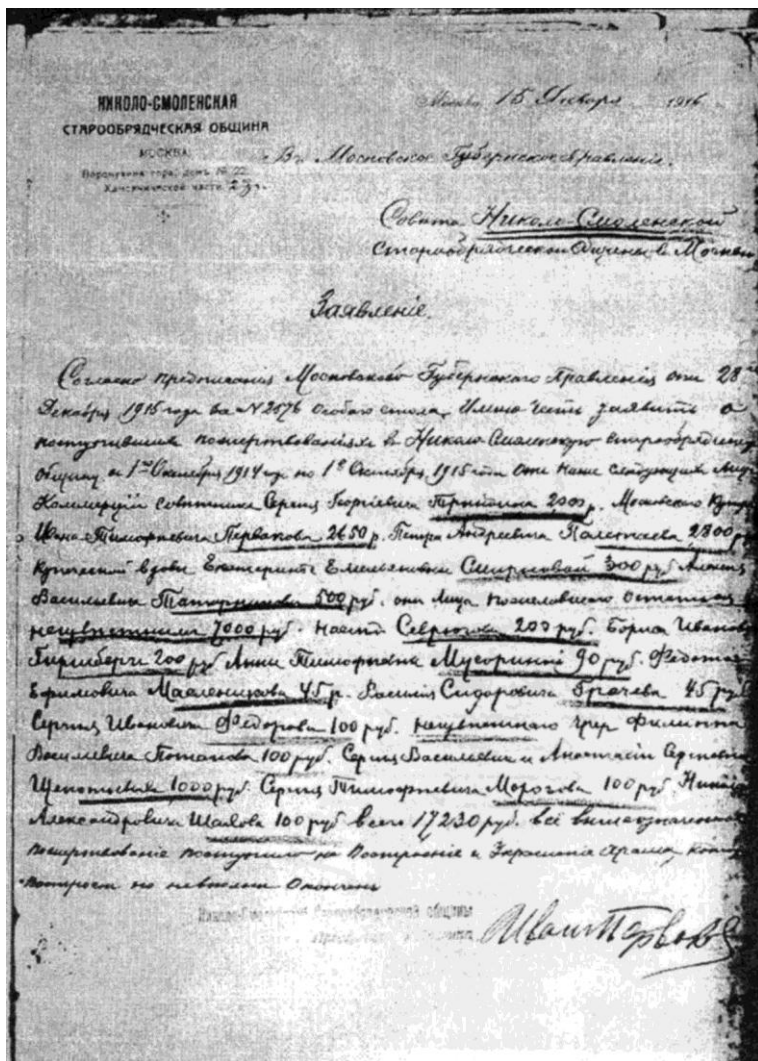 НИКОЛО-СМОЛЕНСКАЯ
СТАРООБРЯДЧЕСКАЯ ОБЩИНА
МОСКВА
Воронцина гора, домъ № 22
части
Москва, 15 Января 1916
Въ Московское Губернское Правленіе.
Совѣта Николо-Смоленской
Старообрядческой Общины в Москвѣ
Заявленіе.
Согласно предписанія Московскаго Губернскаго Правленія отъ 28
Декабря 1915 года за № 2576 Особаго стола, Имѣю честь заявить о
поступившихъ пожертвованіяхъ в Николо-Смоленскую старообрядческ
общину с 1го Октября 1914 г. по 1е Октября 1915 года отъ ниже слѣдующихъ лицъ
Коммерціи совѣтника Сергѣя Георгіевича 2000 р. Московскаго Купца
Ивана Тимофѣевича Первакова 2650 р. Петра Андреевича Палетаева 2800 руб
Купеческой вдовы Екатерины Емельяновны Смирновой 300 руб Алексѣя
Васильевича 500 руб. отъ лица пожелавшаго остаться
неизвѣстнымъ 7000 руб. Севрюгова 200 руб. Бориса Иванов
200 руб Анны Тимофѣевны Мусориной 90 руб. Федота
Ефимовича Масленикова 45 р. Василія Сидоровича Грачева 45 руб
Сергѣя Ивановича Федорова 100 руб. неизвѣстнаго чрез Филиппа
Васильевича Потапова 100 руб. Сергѣя Васильевича и Анастасіи Сергѣевны
1000 руб. Сергѣя Тимофѣевича Морозова 100 руб
Александровича 100 руб всего 17230 руб. всё вышеозначенное
пожертвованіе поступило на Построеніе и Украшеніе храма,
но не вполнѣ Оконченъ
Николо-Смоленской Старообрядческой общины
Иван Перваков